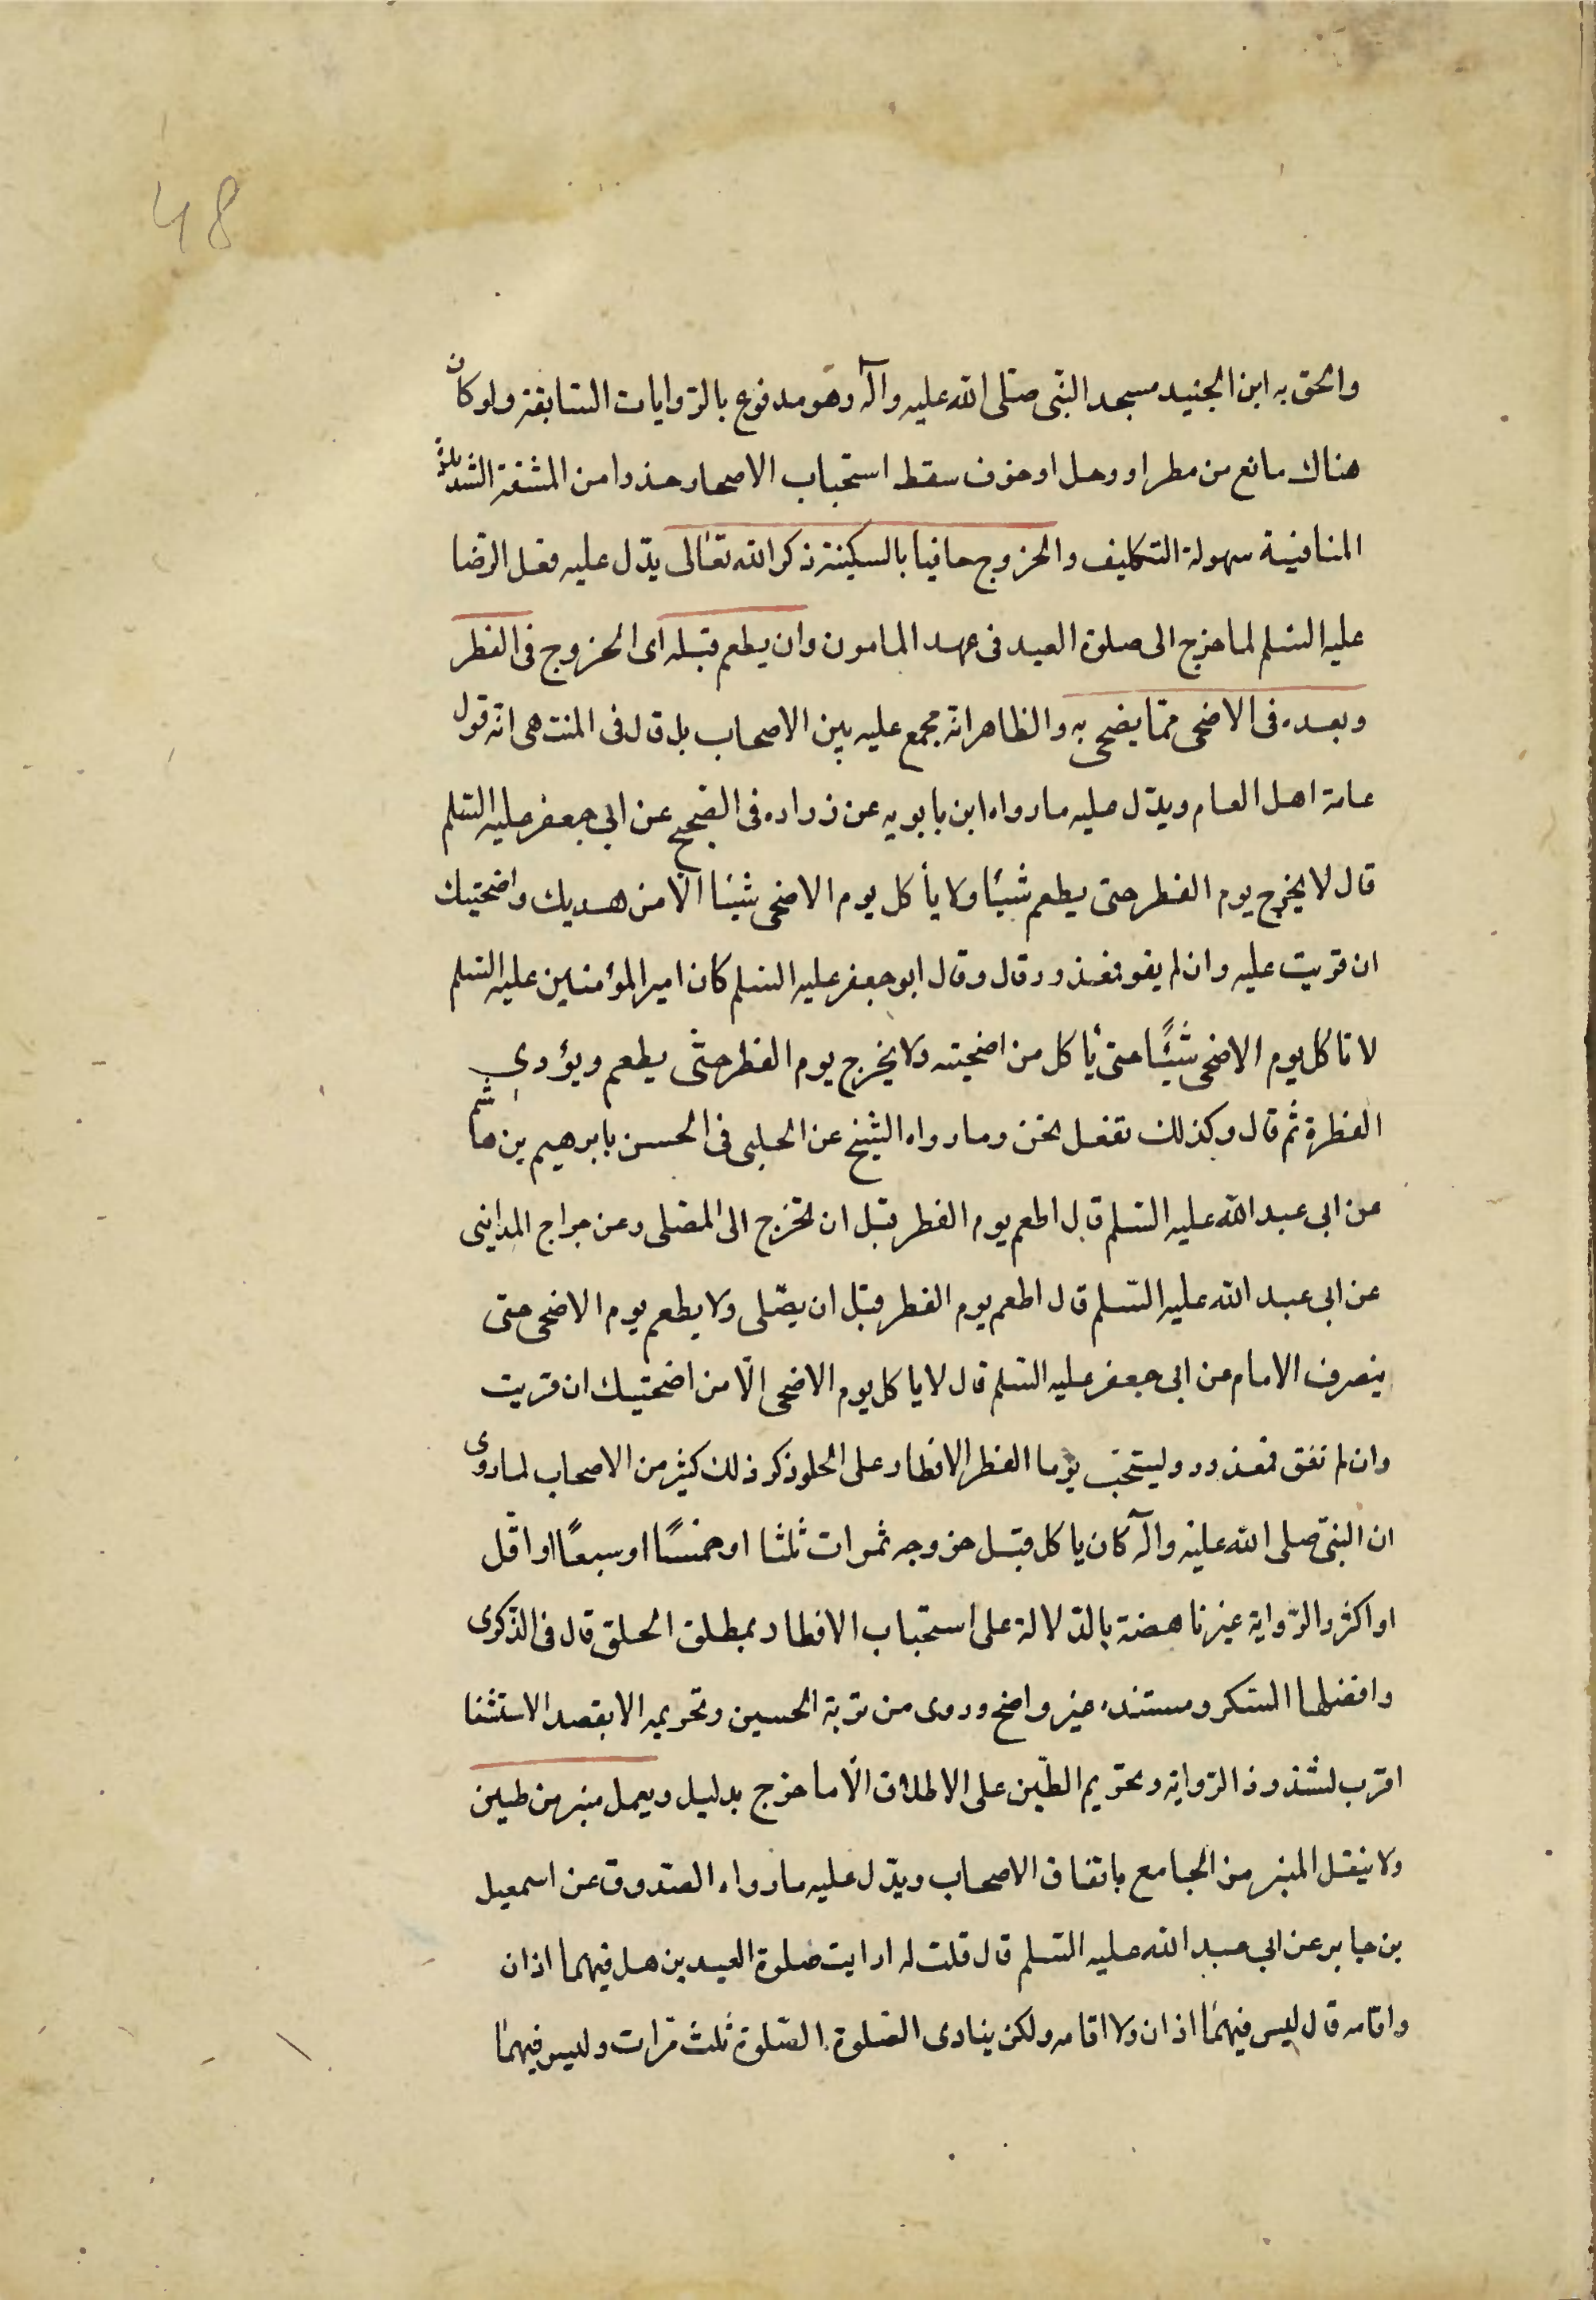 48
والحق به ابن الجنيد مسجد النبى صلى الله عليه وآله وهو مدفوع بالروايات السابقة ولو كان
هناك مانع من مطر او وحل او خوف سقط استحباب الاصحار حذرا من المشقة الشديدة
المنافية سهولة التكليف والخروج حافيا بالسكينة ذكر الله تعالى يدل عليه فعل الرضا
عليه السلم لما خرج الى صلوة العيد فى عهد المامون وان يطعم قبله اى الخروج فى الفطر
وبعده فى الاضحى مما يضحى به والظاهر انه مجمع عليه بين الاصحاب بل قال فى المنتهى انه قول
عامة اهل العلم ويدل عليه ما رواه ابن بابويه عن زراره فى الصحيح عن ابي جعفر عليه السلم
قال لا يخرج يوم الفطر حتى يطعم شيئا ولا يأكل يوم الاضحى شيئا الا من هديك واضحيتك
ان قويت عليه وان لم يقو فمعذور قال وقال ابو جعفر عليه السلم كان امير المؤمنين عليه السلم
لا تاكل يوم الاضحى شيئًا حتى يأكل من اضحيته ولا يخرج يوم الفطر حتى يطعم ويؤدي
الفطرة ثم قال وكذلك نفعل نحن وما رواه الشيخ عن الحلبى فى الحسن بابرهيم بن هاشم
عن ابى عبد الله عليه السلم قال اطعم يوم الفطر قبل ان تخرج الى المصلى وعن جراج المدايني
عن ابى عبد الله عليه السلم قال اطعم يوم الفطر قبل ان يصلى ولا يطعم يوم الاضحى حتى
ينصرف الامام عن ابى جعفر عليه السلم قال لا ياكل يوم الاضحى الا من اضحيتك ان قويت
وان لم تقق فمعذور وليستحب يوما الفطر الافطار على الحلو ذكر ذلك كثير من الاصحاب لما روى
ان النبى صلى الله عليه وآله كان ياكل قبل خروجه ثمرات ثلثا او خمسًا او سبعًا او اقل
او اكثر والرواية غير ناهضة بالدلالة على استحباب الافطار بمطلق الحلق قال فى الذكرى
وافضلها السكر ومستنده غير واضح وروى من تربة الحسين وتحريمه الا بقصد الاستشفا
اقرب لشذوذ الرواية وتحريم الطين على الاطلاق الا ما خرج بدليل ويعمل منبر من طين
ولا ينقل المنبر من الجامع باتفاق الاصحاب ويدل عليه ما رواه الصدوق عن اسمعيل
بن جابر عن ابي عبد الله عليه السلم قال قلت له ارايت صلوة العيدين هل فيهما اذان
واقامه قال ليس فيهما اذان ولا اقامه ولكن ينادى الصلوة الصلوة ثلث مرات وليس فيهما